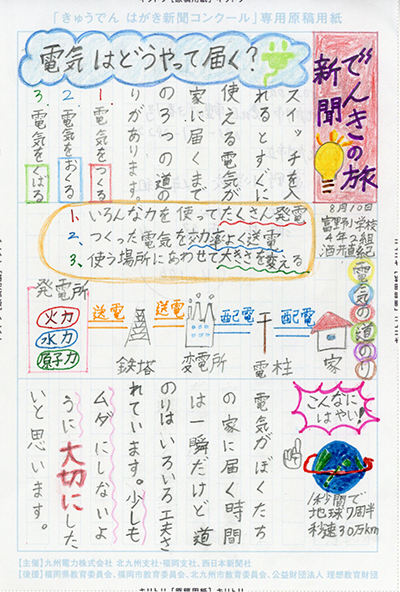 「きゅうでん はがき新聞コンクール」専用原稿用紙
でんきの旅
新聞
8月10日
富野小学校
4年2組
電気はどうやって届く?
スイッチを入
れるとすぐに
使える電気が
家に届くまで
の3つの道の
りがあります。
1.電気をつくる
2.電気をおくる
3.電気をくばる
1、いろんな力を使ってたくさん発電
2、つくった電気を効率よく送電
3、使う場所にあわせて大きさを変える
電気の道のり
発電所
火力
水力
原子力
送電
鉄塔
送電
変電所
配電
電柱
配電
家
こんなに
はやい!
1秒間で
地球7周半
秒速30万km
電気がぼくたち
の家に届く時間
は一瞬だけど道
のりはいろいろ工夫さ
れています。少しも
ムダにしないよ
うに大切にした
いと思います。
【主催】九州電力株式会社 北九州支社・福岡支社、西日本新聞社
【後援】福岡県教育委員会、福岡市教育委員会、北九州市教育委員会、公益財団法人 理想教育財団